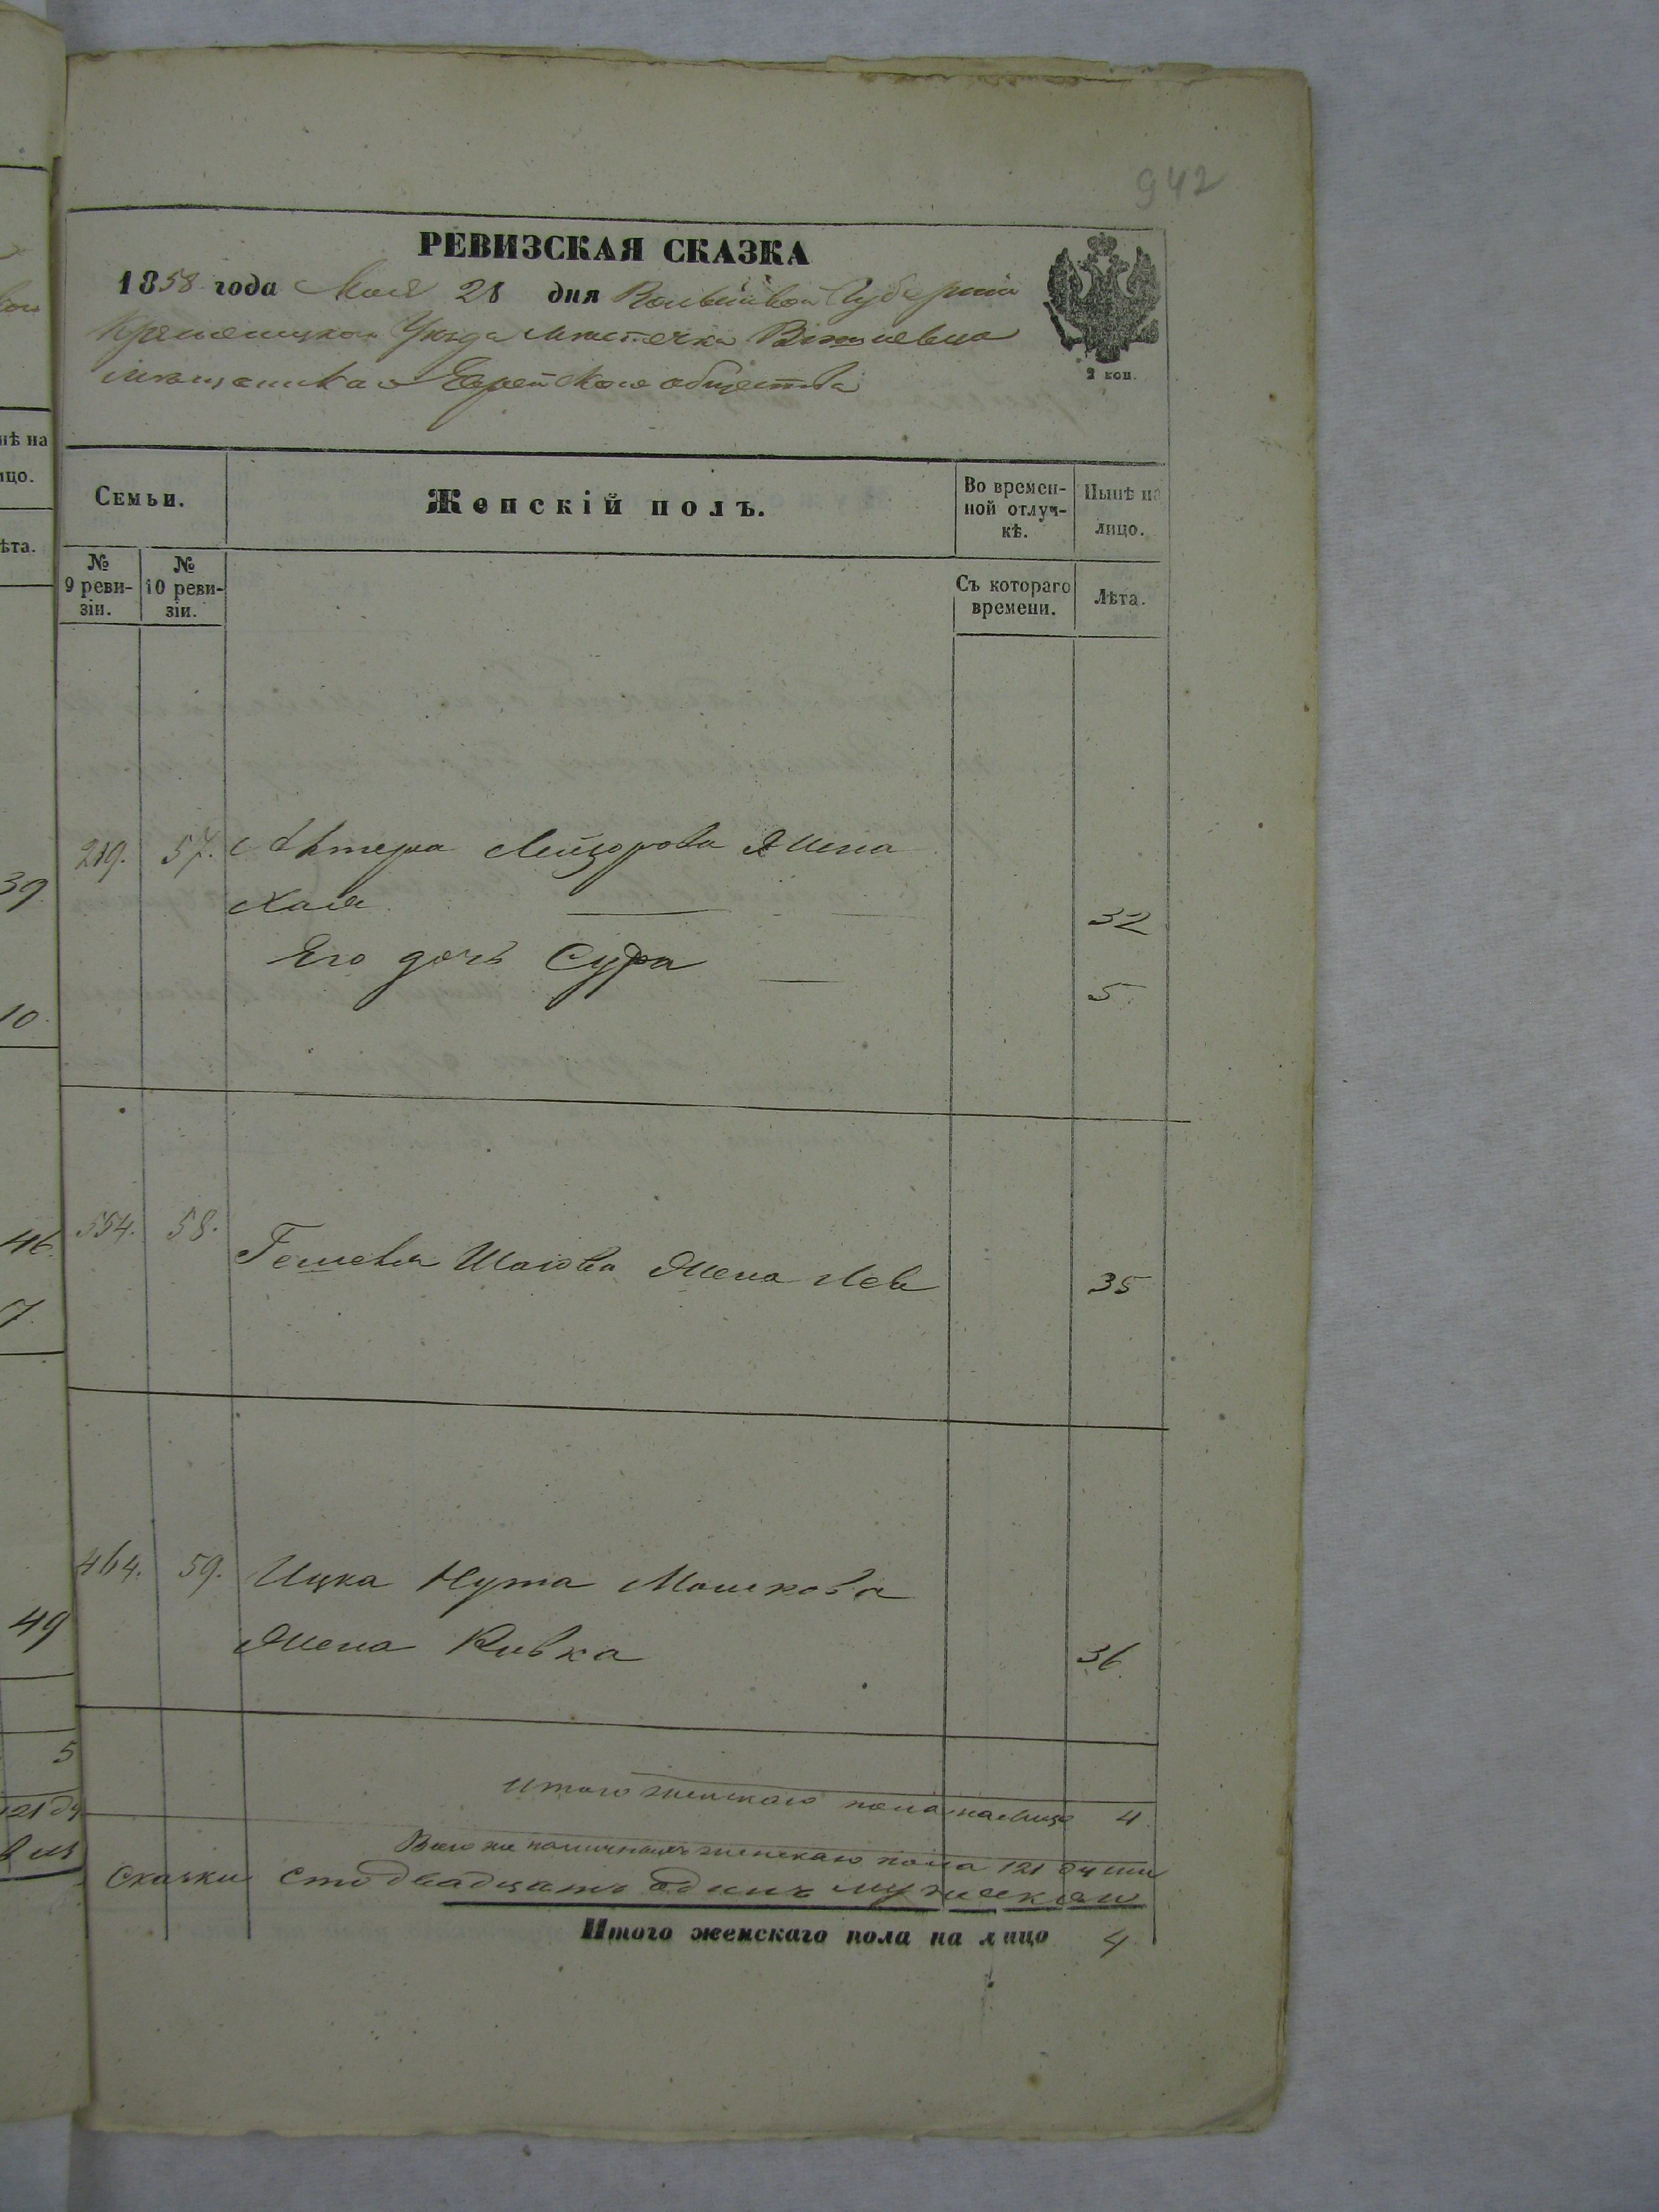 942
РЕВИЗСКАЯ СКАЗКА
1858 года Мая 28 дня Волынской Губерніи
Кременецкаго Уѣзда Мѣстечка Вишневца
Мѣщанскаго Еврейскаго общества
2 коп.
нѣ на
ицо.
ѣта.
Семьи.
Женскій полъ.
Во времен-
ной отлуч-
кѣ.
Нынѣ на
лицо.
№
9 реви-
зіи.
№
10 реви-
зіи.
Съ котораго
времени.
Лѣта.
219. 57. Лейзорова жена
39
Хая 32
Его дочь Сура 5
10
554. 58.
46
Шаіова жена Лея 35
7.
464. 59. Ицка Нута Мошкова
49
жена Ривка 36
5
Итого женскаго пола налицо 4
121 ду
Всего же наличнаго женскаго пола 121 души
Сказки сто двадцать одинъ
Итого женскаго пола на лицо 4